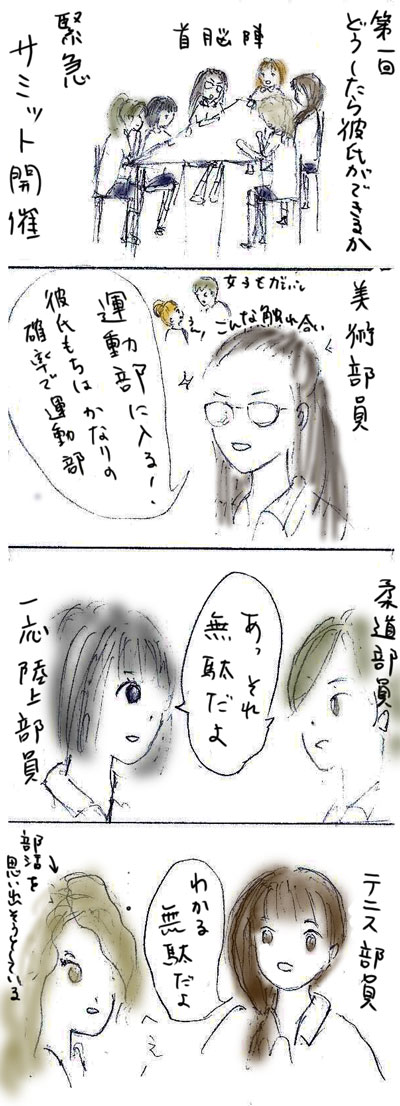 第一回
どうしたら彼氏ができるか
首脳陣
緊急
サミット開催
美術部員
女子もガバッ
こんな触れ合い
え
運動部に入る!、
彼氏もちはかなりの
確率で運動部
柔道部員
あっそれ
無駄だよ
一応陸上部員
テニス部員
わかる
無駄だよ
へぇ
部活を
思い出そうとしている